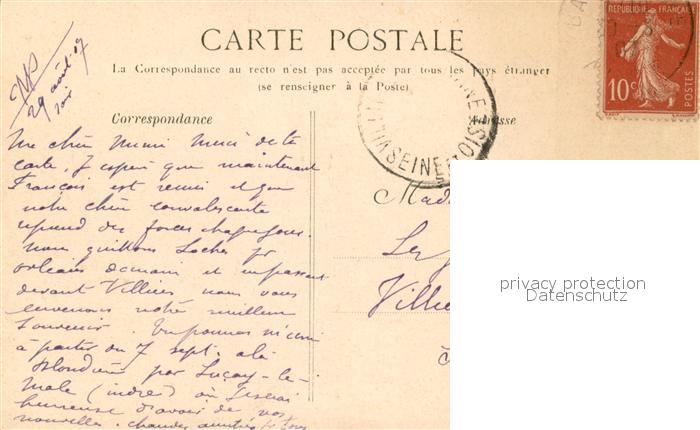 29 août 07
soir
CARTE POSTALE
La Correspondance au recto n'est pas acceptée par tous les pays étranger
(se renseigner à la Poste)
Correspondance
Adresse
RÉPUBLIQUE FRANÇAISE
10 c
POSTES
SEINE-ET-OISE
Ma chère Mimi Merci de ta
carte, J'espère que maintenant
François est remis et que
notre chère convalescente
reprend des forces chaque jour.
Nous quittons Loches pr
Orléans demain et en passant
devant Villiers nous vous
envenons notre meilleur
Souvenir. Tu pourras m'écrire
à partir du 7 sept. à la
par Luçay-le-
Male (indre) où je serai
heureuse d'avoir de vos
nouvelles. Chaudes amitiés à tous
Mad
Les
Villie
privacy protection
Datenschutz